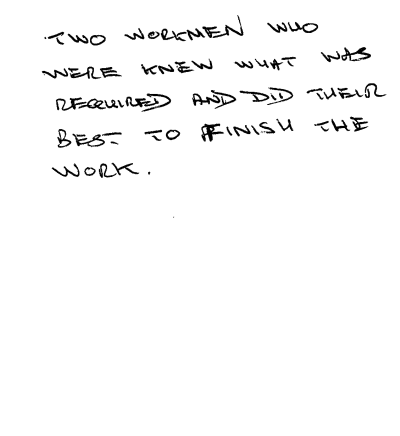 TWO WORKMEN WHO
WERE KNEW WHAT WAS
REQUIRED AND DID THEIR
BEST TO FINISH THE
WORK.